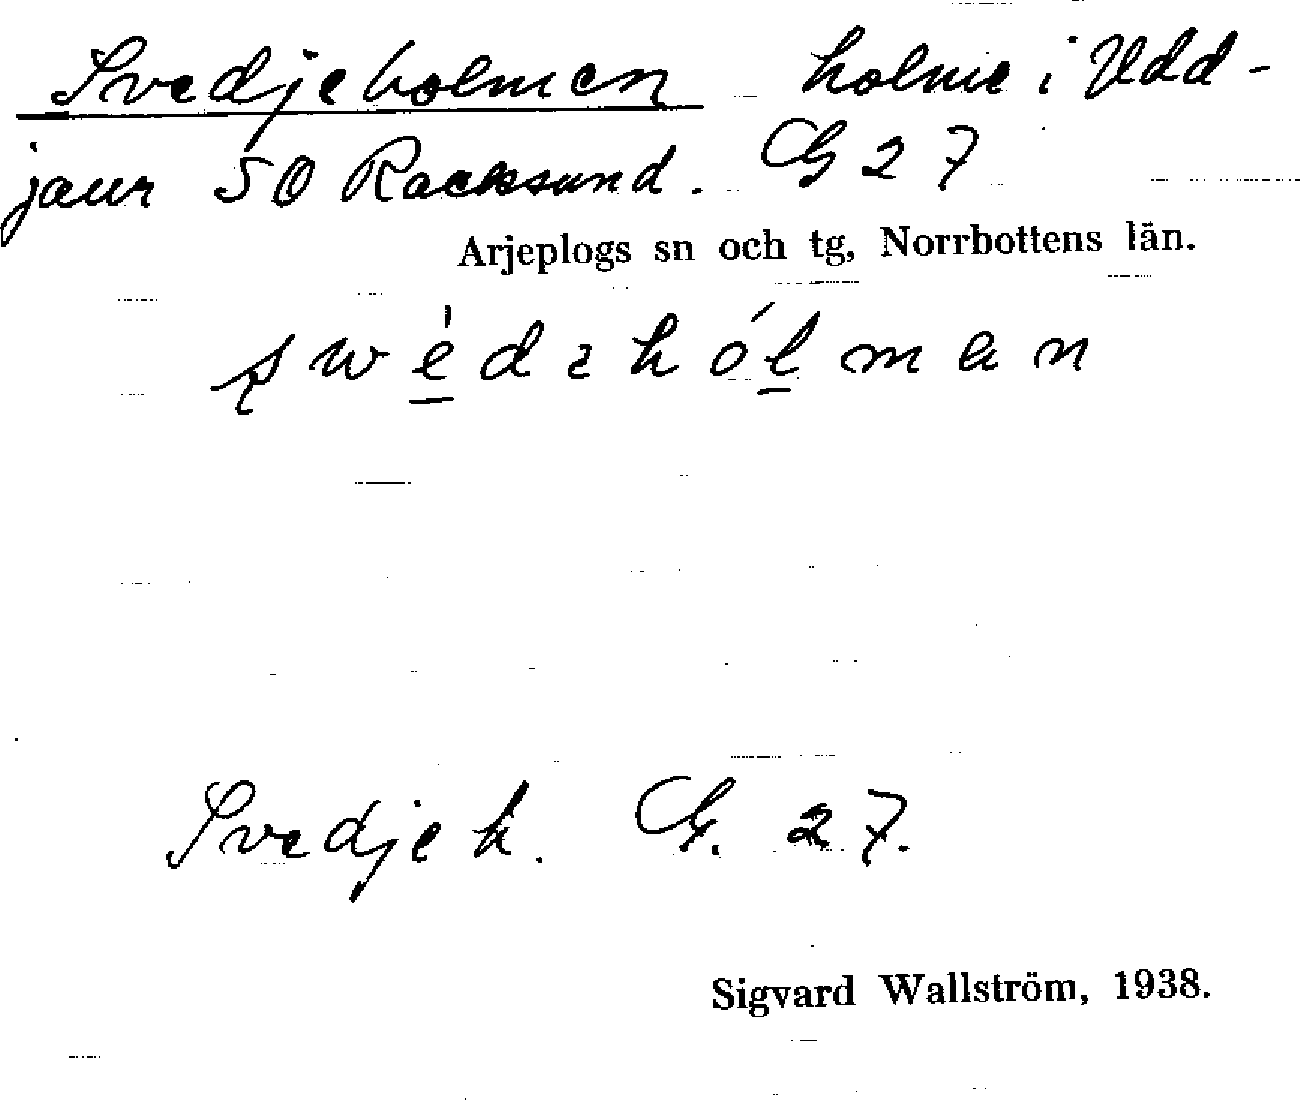 Svedjeholmen holme i Udd-
jaur SO Racksund. G 27
Arjeplogs sn och tg, Norrbottens län.
Svedjeh. G. 27.
Sigvard Wallström, 1938.